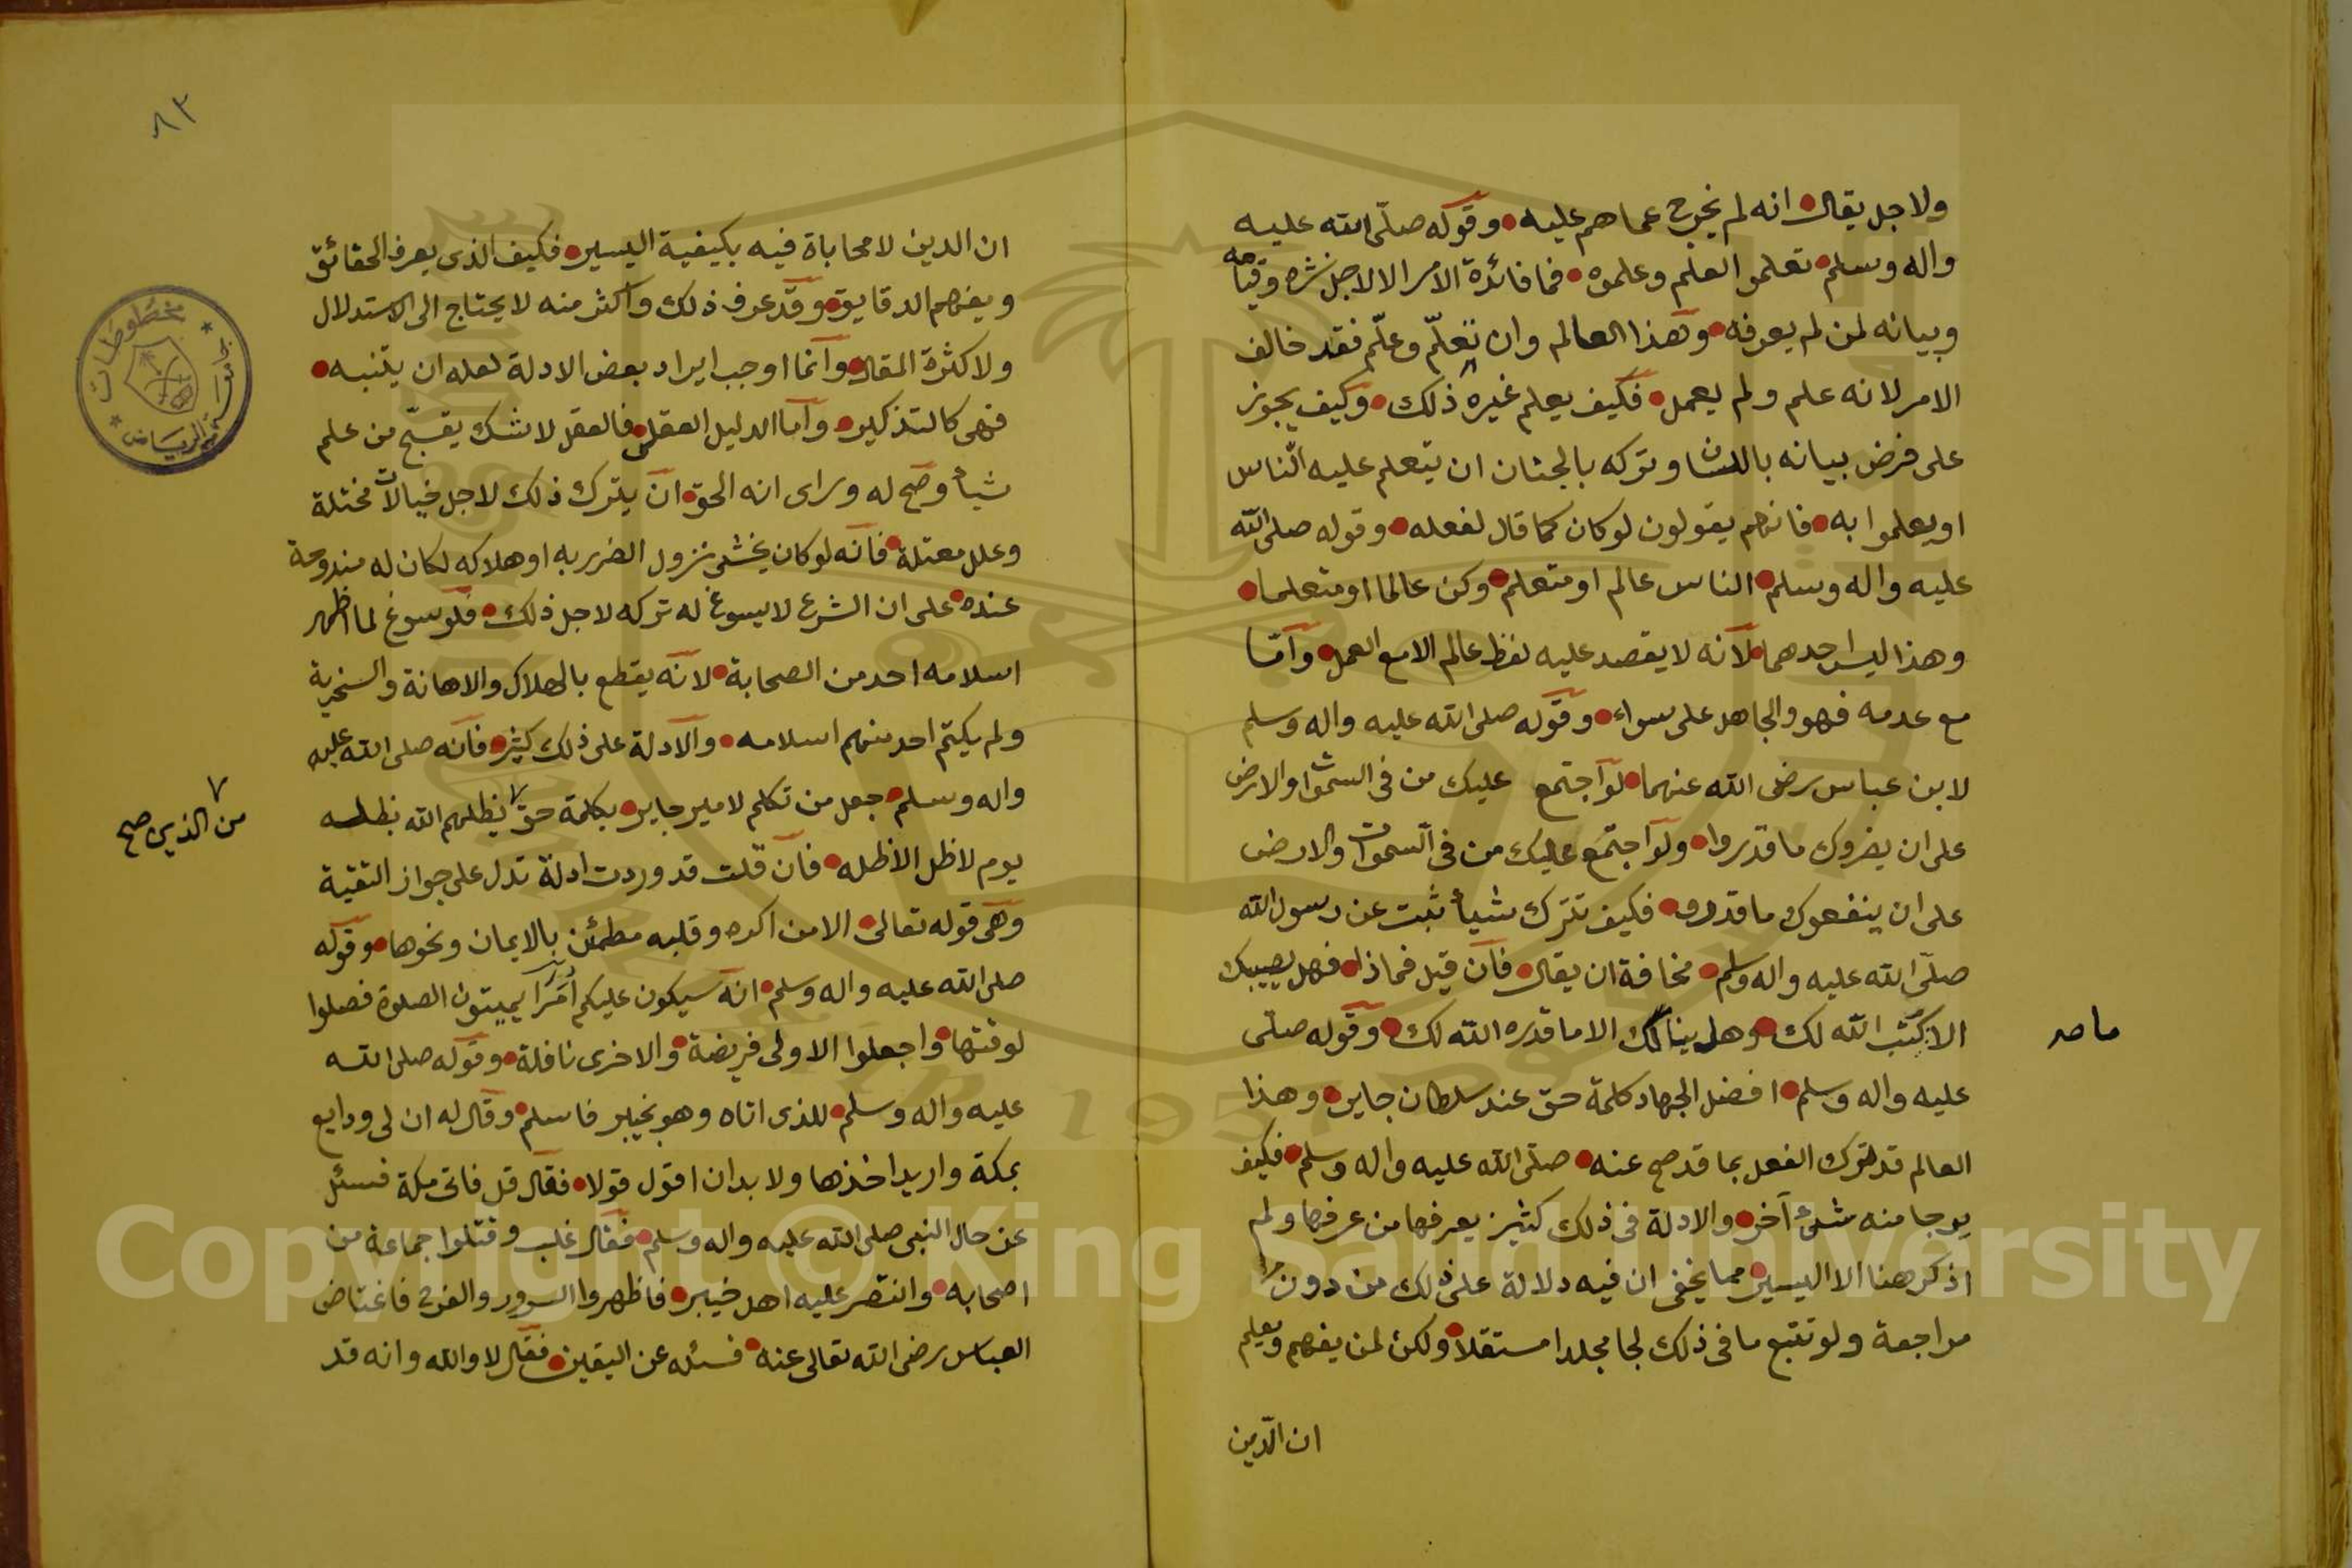 ولاجل يقال انه لم يخرج عما هم عليه وقوله صلى الله عليه
واله وسلم تعلموا العلم وعلموه فما فائدة الامر الا لاجل نشره وقيامه
وبيانه لمن لم يعرفه وهذا العالم وان تعلّم وعلّم فقد خالف
الامر لانه علم ولم يعمل فكيف يعلم غيره ذلك وكيف يجوز
على فرض بيانه باللسان وتركه بالجنان ان يتعلم عليه الناس
او يعلموا به فانهم يقولون لو كان كما قال لفعله وقوله صلى الله
عليه واله وسلم الناس عالم او متعلم وكن عالما او متعلما
وهذا ليس احدهما لانه لا يقصد عليه لفظ عالم الا مع العمل واما
مع عدمه فهو والجاهل على سواء وقوله صلى الله عليه واله وسلم
لابن عباس رضى الله عنهما لو اجتمع عليك من فى السموات والارض
على ان يضروك ما قدروا ولو اجتمع عليك من فى السموات والارض
على ان ينفعوك ما قدروا فكيف تترك شيأ ثبت عن رسول الله
صلى الله عليه واله وسلم مخافة ان يقال فان قيل فماذا فهل يصيبك
الا ما كتب الله لك وهل ينالك الا ما قدره الله لك وقوله صلى
ما صح
عليه واله وسلم افضل الجهاد كلمة حق عند سلطان جاير وهذا
العالم قد ترك الفعل بما قد صح عنه صلى الله عليه واله وسلم فكيف
يرجا منه شئ آخر والادلة فى ذلك كثير يعرفها من عرفها ولم
اذكر هنا الا اليسير مما يخفى ان فيه دلالة على ذلك من دون
مراجعة ولو تتبع ما فى ذلك لجا مجلدا مستقلا ولكن لمن يفهم ويعلم
ان الدين
٨٣
ان الدين لا محاباة فيه بكيفية اليسير فكيف الذى يعرف الحقائق
ويفهم الدقايق وقد عرف ذلك واكثر منه لا يحتاج الى الاستدلال
ولا كثرة المقال وانما اوجب ايراد بعض الادلة لعله ان يتنبه
فهى كالتذكير واما الدليل العقلى فالعقل لا شك يقبّح من علم
شيأ وصح له وراى انه الحق ان يترك ذلك لاجل خيالات مختلة
وعلل معتلة فانه لو كان يخشى نزول الضرر به او هلاكه لكان له مندوحة
عنده على ان الشرع لا يسوغ له تركه لاجل ذلك فلو سوغ لما اظهر
اسلامه احد من الصحابة لانه يقطع بالهلاك والاهانة والسخرية
ولم يكتم احد منهم اسلامه والادلة على ذلك كثير فانه صلى الله عليه
واله وسلم جعل من تكلم لامير جاير بكلمة حق يظلهم الله بظله
من الذين صح
يوم لا ظل الا ظله فان قلت قد وردت ادلة تدل على جواز التقية
وهى قوله تعالى الا من اكره وقلبه مطمئن بالايمان ونحوها وقوله
صلى الله عليه واله وسلم انه سيكون عليكم أمرا يميتون الصلوة فصلوا
لوقتها واجعلوا الاولى فريضة والاخرى نافلة وقوله صلى الله
عليه واله وسلم للذى اتاه وهو بخيبر فاسلم وقال له ان لى ودايع
بمكة واريد اخذها ولا بد ان اقول قولا فقال قل فاتى مكة فسئل
عن حال النبى صلى الله عليه واله وسلم فقال غلب وقتلوا جماعة من
اصحابه وانتصر عليه اهل خيبر فاظهروا السرور والفرح فاغتاض
العباس رضى الله تعالى عنه فسئله عن اليقين فقال لا والله وانه قد
مخطوطات
جامعة الرياض
Copyright © King Saud University
1957